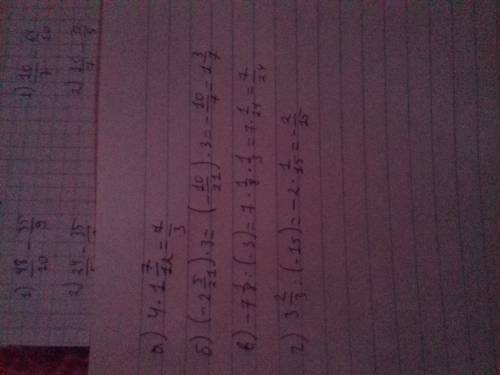 1) 48/20 - 35/9
2) 24/ - 35/
1) 10/7 -
2) 10/7 -
а) 4 · 1 7/12 = 7/3
б) (-2 5/21) · 3 = (-10/21) · 3 = -10/7 = 1 3/7
в) -7 1/8 : (-3) = 7 · 1/8 · 1/3 = 7 · 1/24 = 7/24
г) 3 2/3 : (-15) = -2 · 1/15 = -2/15